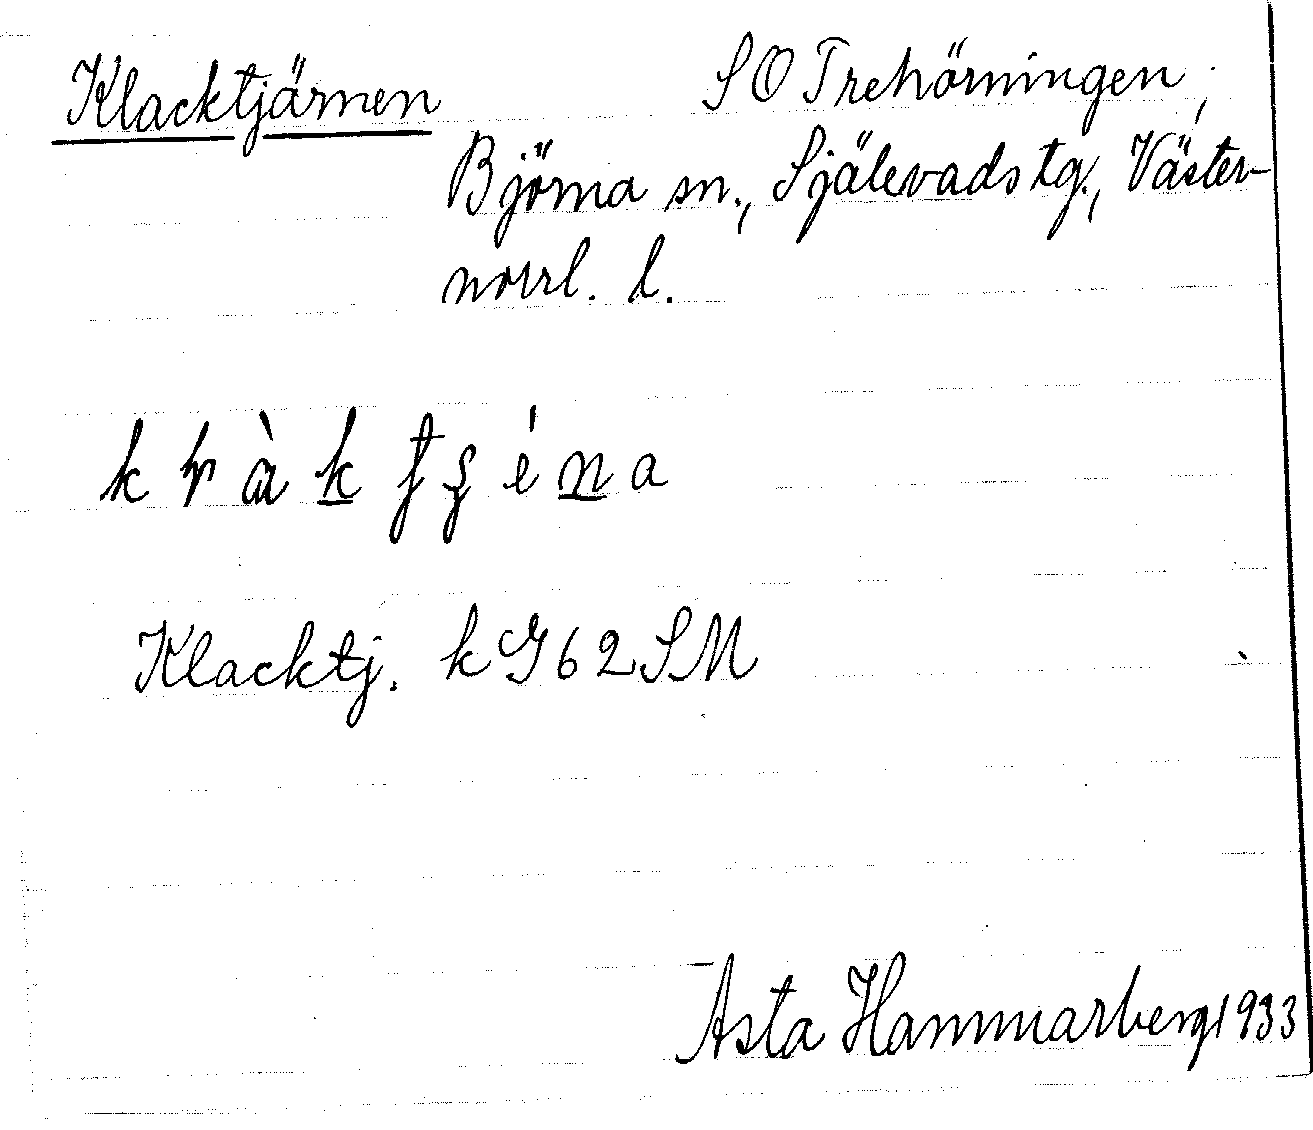 Klacktjärnen SO Trehörningen,
Björna sn., Själevads tg., Väster-
norrl. l.
Klacktj. k G 62 SM
Asta Hammarberg 1933